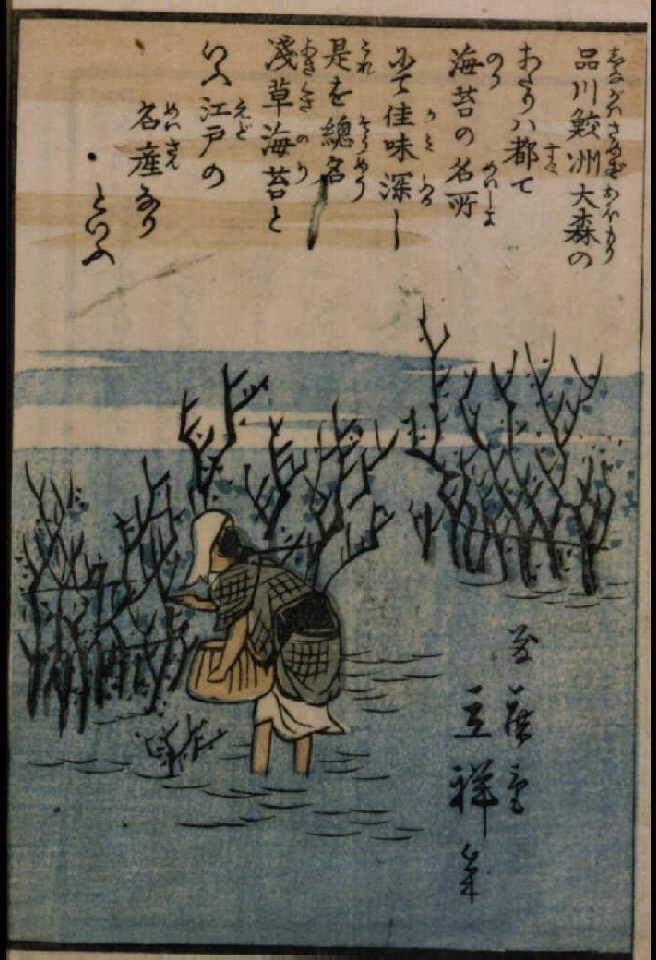 品川鮫洲大森の
あたりハ都て
海苔の名所
にて佳味深し
是を總名
淺草海苔と
いふ江戸の
名産なり
といふ
立祥筆